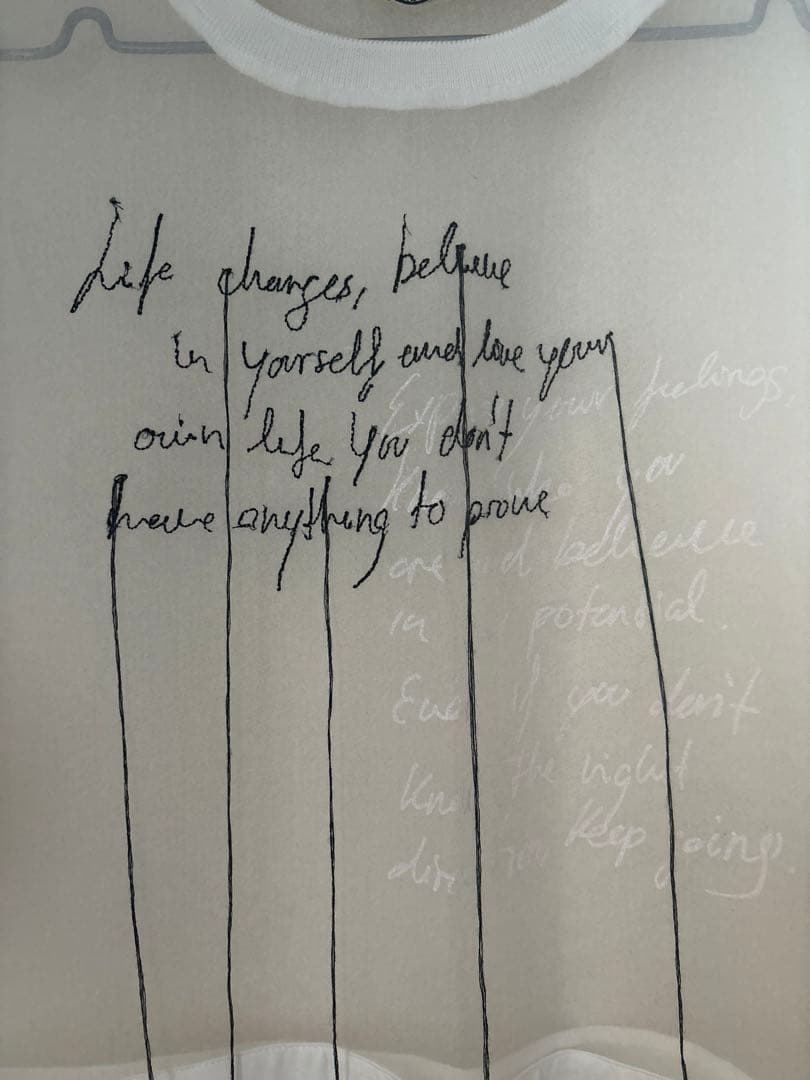 Life changes, believe
in yourself and love your
own life you don't
have anything to prove
your feelings,
you
are
in potential.
if you don't
the right
keep going.